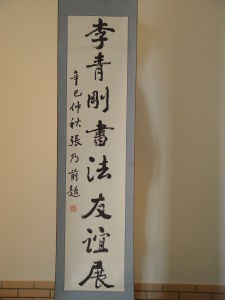 李青剛書法友誼展
辛巳仲秋張乃前題